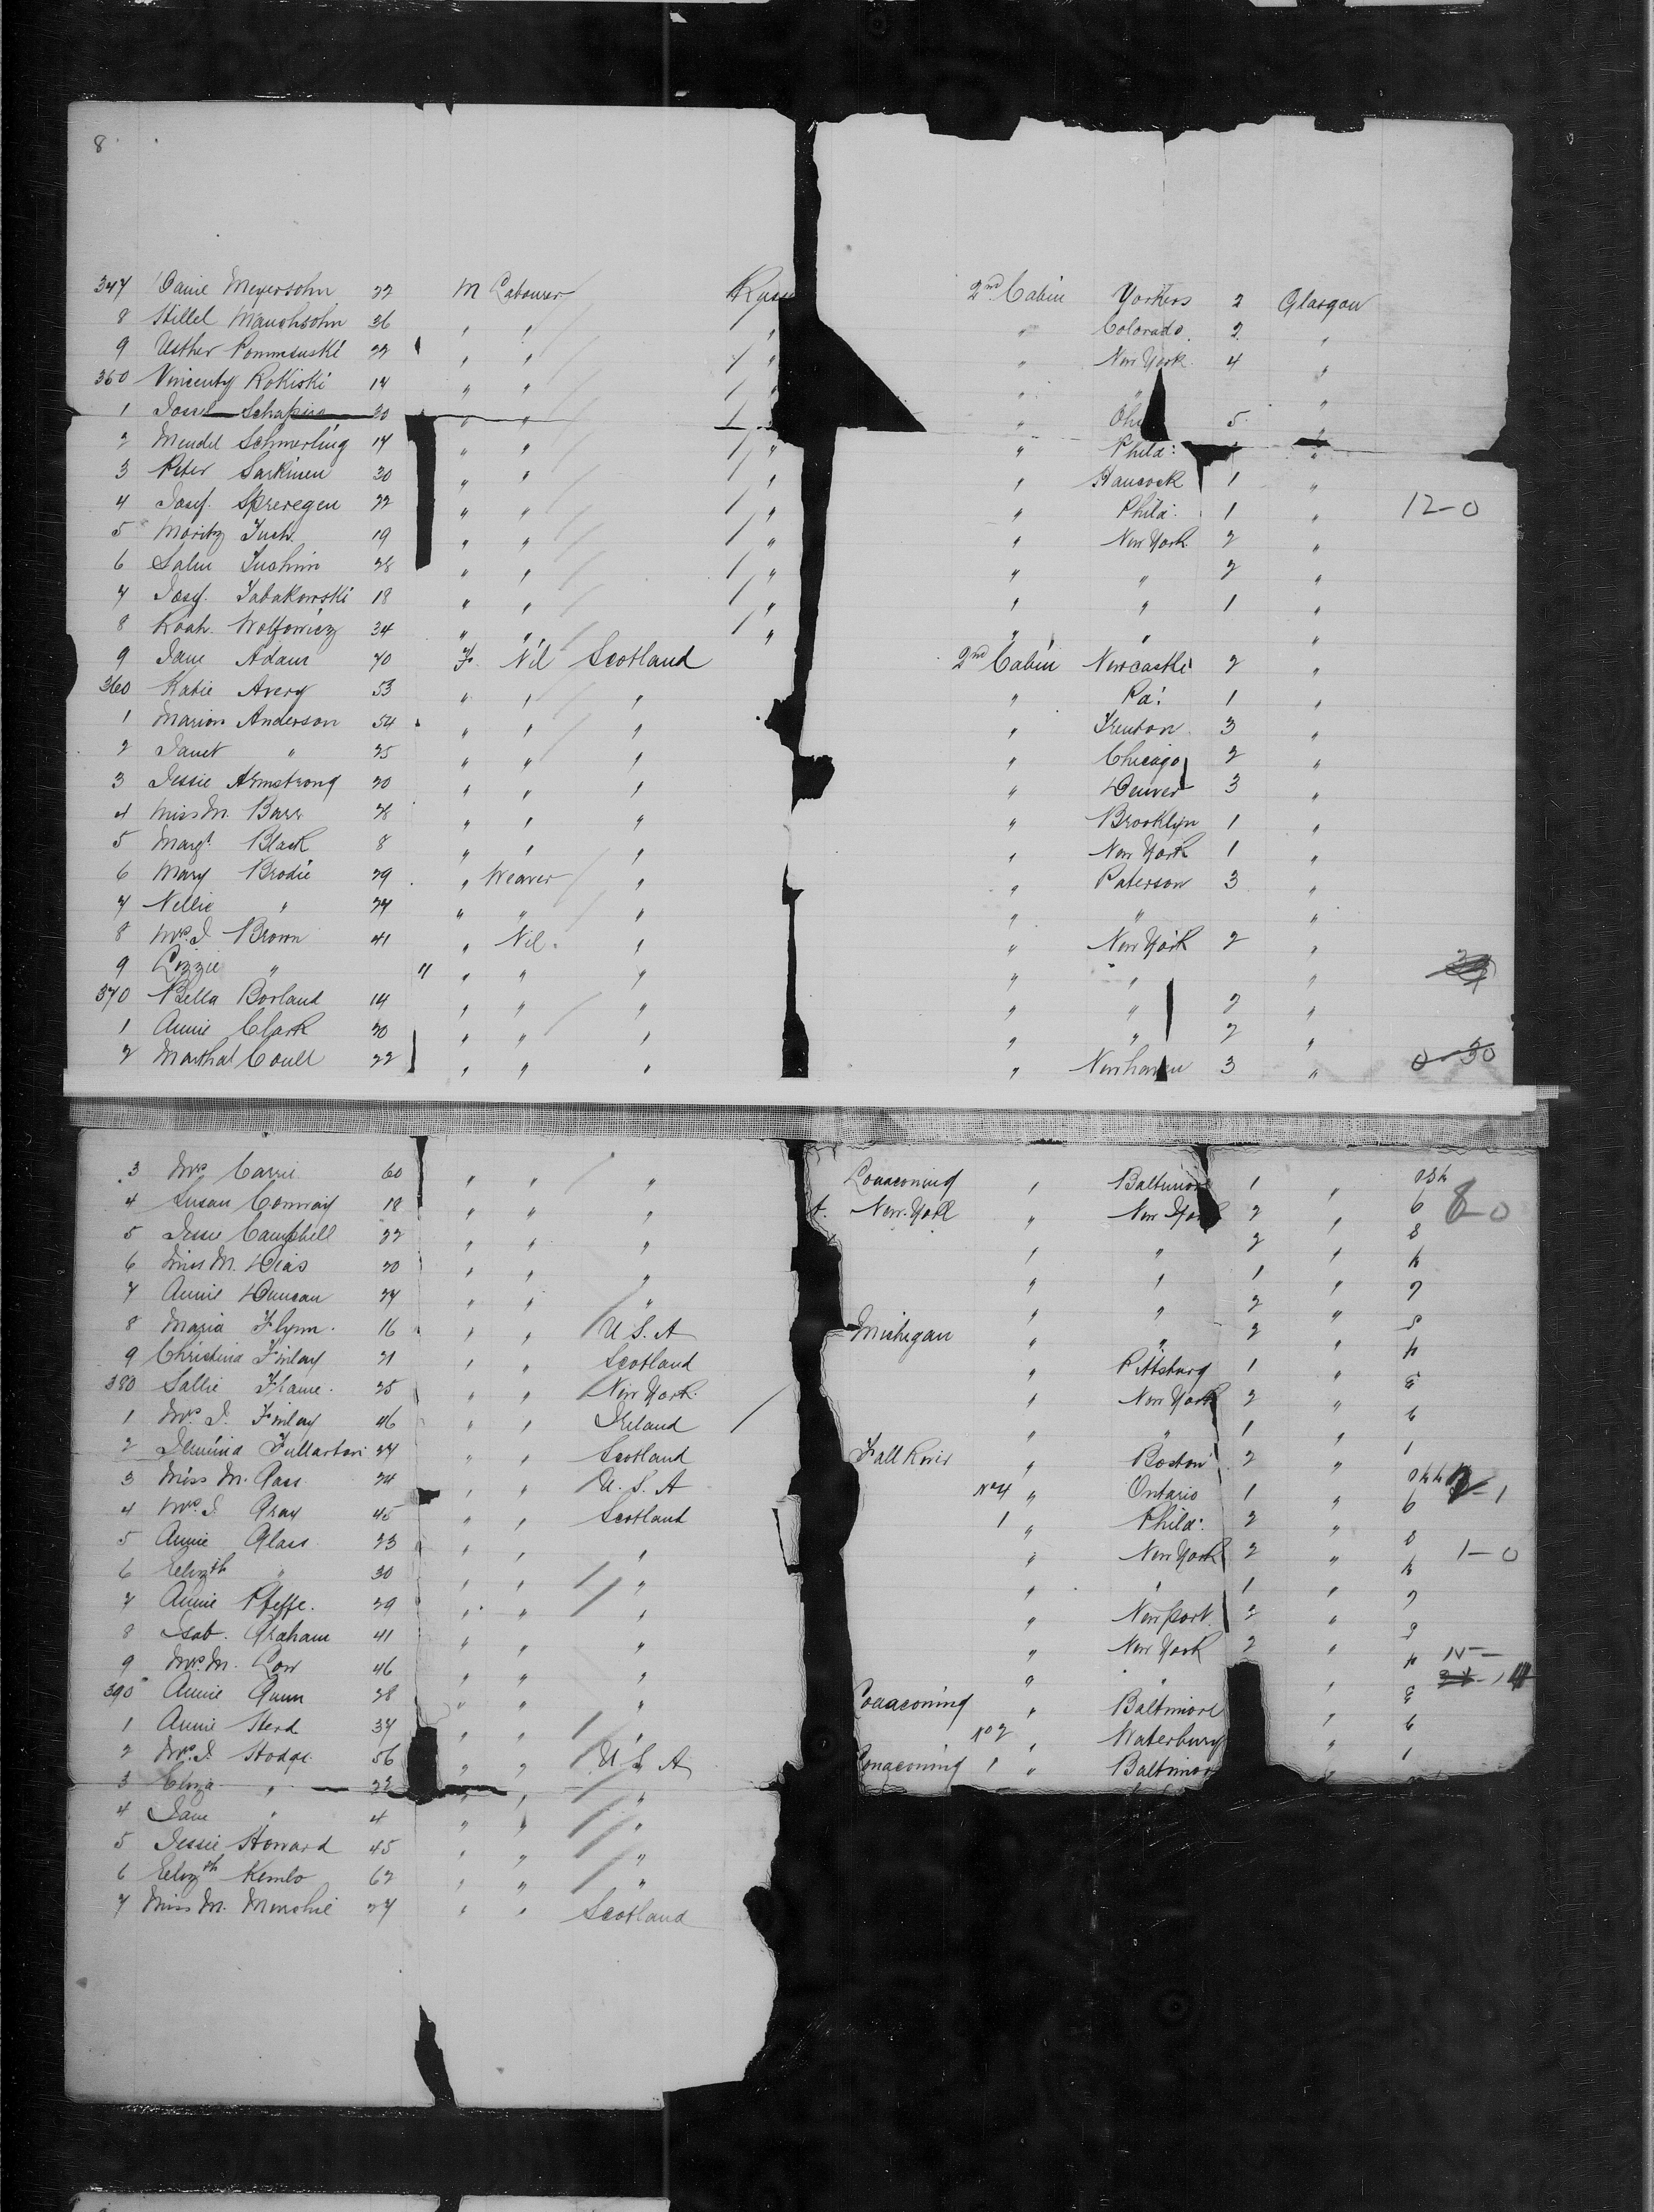 8
347 Danie Meyersohn 22 M Labourer Russ 2nd Cabin Yonkers 2 Glasgow
8 Hillel Manchsohn 36 " " " " Colorado 2 "
9 Usther Pommsuski 22 " " " " New York 4 "
350 Vincenty Rokiski 14 " " " " " "
1 Schapiro 30 " " " Ohi 5 "
2 Mendel Schmerling 17 " " " " Phila: "
3 Peter Sarkinen 30 " " " " Hancock 1 "
4 Josef Spreregen 22 " " " " Phila: 1 " 12-0
5 Moritz Tuch 19 " " " " New York 2 "
6 Salm Tuchim 28 " " " " " 2 "
7 Josef Tabakowski 18 " " " " " 1 "
8 Noah Wolfowicz 34 " " " " " "
9 Jane Adam 70 F. Nil Scotland 2nd Cabin Newcastle 2 "
360 Katie Avery 53 " " " " Pa: 1 "
1 Marion Anderson 54 " " " " Trenton 3 "
2 Janet " 25 " " " " Chicago 2 "
3 Jessie Armstrong 20 " " " " Denver 3 "
4 Miss M. Barr 28 " " " " Brooklyn 1 "
5 Margt. Black 8 " " " " New York 1 "
6 Mary Brodie 29 " Weaver " " Paterson 3 "
7 Nellie " 24 " " " " " "
8 Mrs. J Brown 41 " Nil " " New York 2 "
9 Lizzie " 11 " " " " " "
370 Bella Borland 14 " " " " " 2 "
1 Annie Clark 20 " " " " " 2 "
2 Martha Coull 22 " " " " Newhaven 3 " 0-30
3 Mrs Carrie 60 " " " Lonaconing " Baltimore 1 "
4 Susan Conway 18 " " " New York " New York 2 " 8-0
5 Jessie Campbell 22 " " " " " 2 "
6 Miss M. Dias 20 " " " " " 1 "
7 Annie Duncan 24 " " " " " 2 "
8 Maria Flynn 16 " " U.S.A Michigan " " 2 "
9 Christina Finlay 21 " " Scotland " Pittsburg 1 "
380 Sallie Flame 25 " " New York " New York 2 "
1 Mrs. J. Finlay 46 " " Ireland " " 1 "
2 Jemima Fullarton 24 " " Scotland Fall River " Boston 2 "
3 Miss M. Gass 24 " " U.S.A No 4 " Ontario 1 "
4 Mrs. J. Gray 45 " " Scotland 1 " Phila: 2 "
5 Annie Glass 23 " " " " New York 2 " 1-0
6 Elizth " 30 " " " " " 1 "
7 Annie Pfeffe. 29 " " " " Newport 2 "
8 Isab. Graham 41 " " " " New York 2 "
9 Mrs. M. Low 46 " " " " " "
390 Annie Gunn 28 " " " Lonaconing " Baltimore
1 Annie Herd 37 " " " No 2 " Waterbury "
2 Mrs. J. Hodge 56 " " U.S.A Lonaconing 1 " Baltimor
3 Eliza " 22 " " "
4 Jane " 4 " " "
5 Jessie Howard 45 " " "
6 Elizth Kemlo 62 " " "
7 Miss M. Murchie 27 " " Scotland